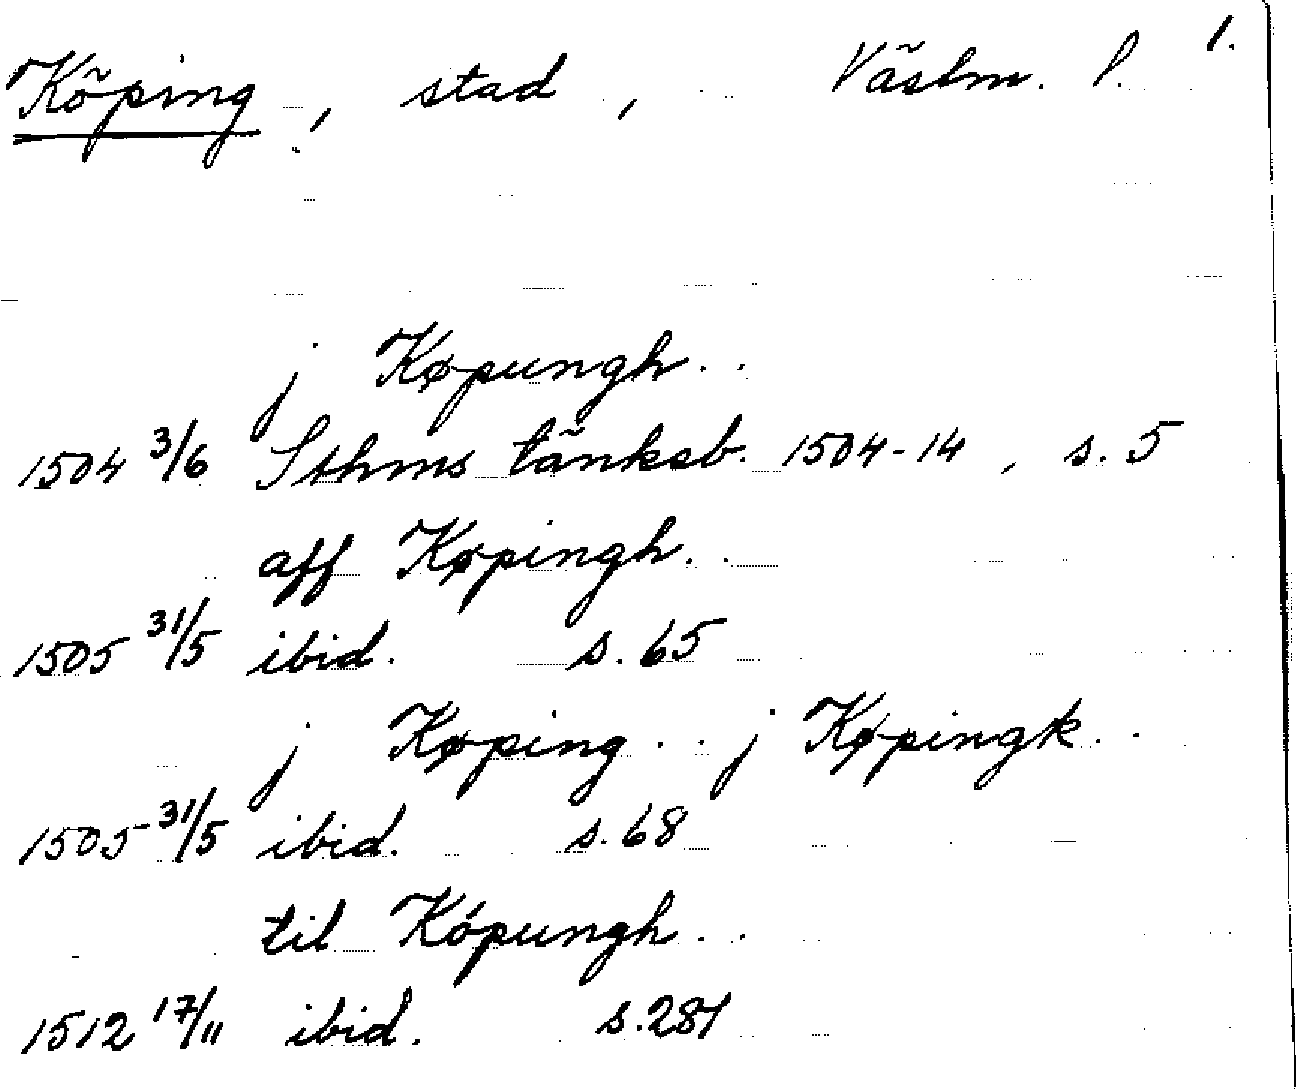 Köping, stad, Västm. l. 1.
j Køpungh..
1504 3/6 Sthms tänkeb. 1504-14, s. 5
aff Køpingh..
1505 31/5 ibid. s. 65
j Køping.. j Køpingk..
1505 31/5 ibid. s. 68
til Kópungh..
1512 17/11 ibid. s. 281